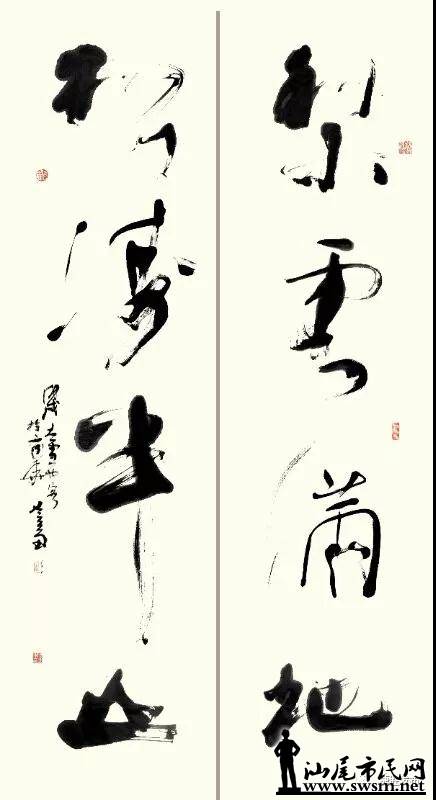 梨雲满地
松涛半山
汕尾市民网
www.swsm.net